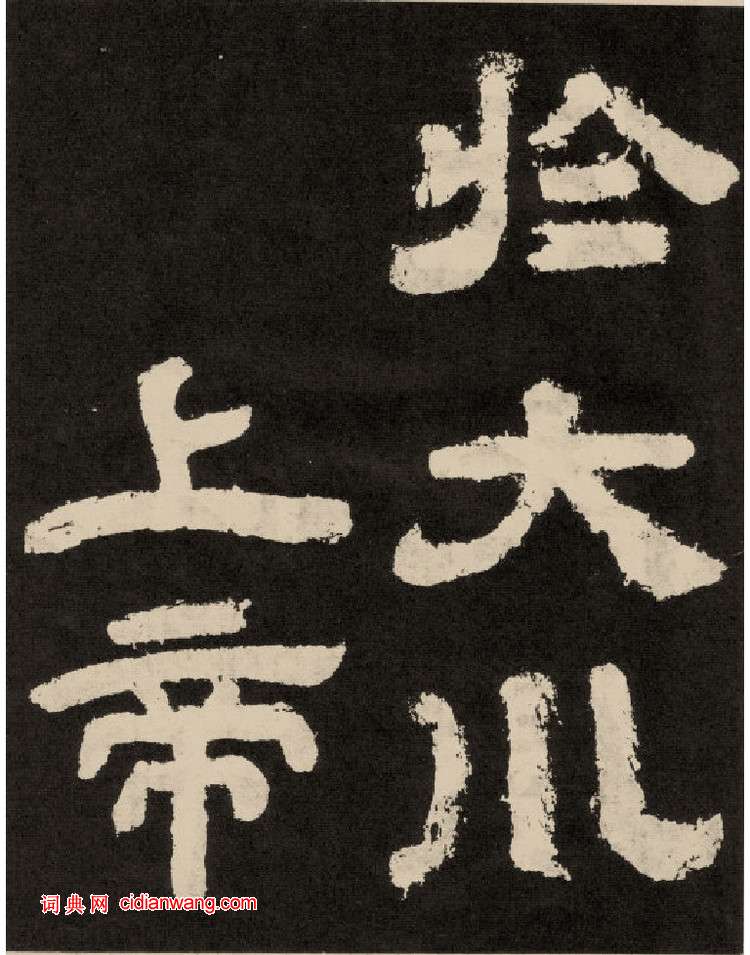 於大川
上帝
词典网 cidianwang.com